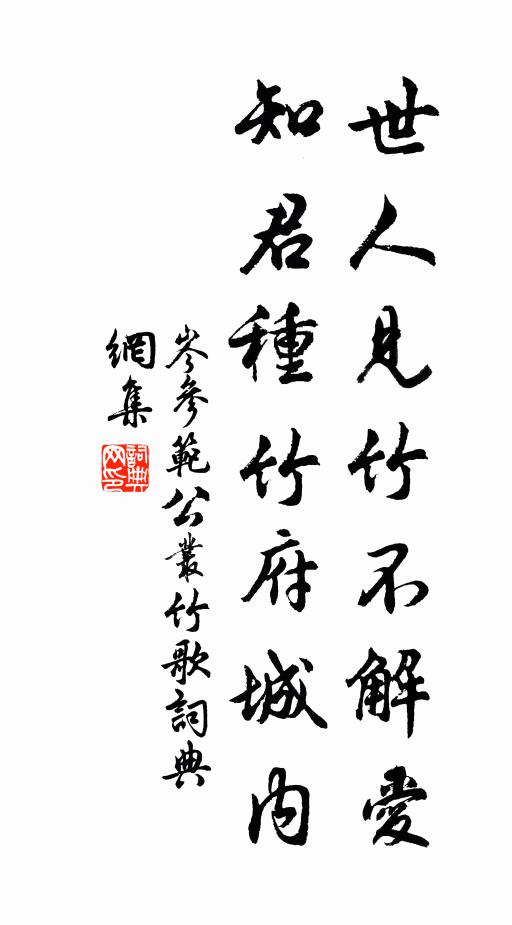 世人見竹不解愛
知君種竹府城內
岑參範公叢竹歌詞典
網集
詞典
网印